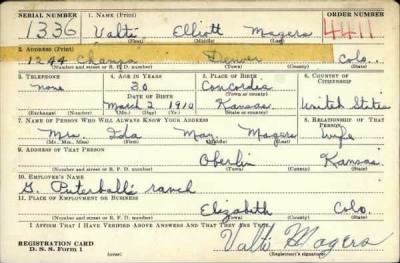 SERIAL NUMBER 1. NAME (Print) ORDER NUMBER
1336 Valti Elliott Magers 4411
(First) (Middle) (Last)
2. ADDRESS (Print)
1244 Champa Denver Colo.
(Number and street or R. F. D. number) (Town) (County) (State)
3. TELEPHONE 4. AGE IN YEARS 5. PLACE OF BIRTH 6. COUNTRY OF CITIZENSHIP
none 30 Concordia
DATE OF BIRTH (Town or county)
March 2 1910 Kansas United States
(Exchange) (Number) (Mo.) (Day) (Yr.) (State or country)
7. NAME OF PERSON WHO WILL ALWAYS KNOW YOUR ADDRESS 8. RELATIONSHIP OF THAT PERSON
Mrs. Ida May Magers Wife
(Mr., Mrs., Miss) (First) (Middle) (Last)
9. ADDRESS OF THAT PERSON
Oberlin Kansas
(Number and street or R. F. D. number) (Town) (County) (State)
10. EMPLOYER'S NAME
G. ranch
11. PLACE OF EMPLOYMENT OR BUSINESS
Elizabeth Colo.
(Number and street or R. F. D. number) (Town) (County) (State)
I AFFIRM THAT I HAVE VERIFIED ABOVE ANSWERS AND THAT THEY ARE TRUE.
REGISTRATION CARD Valti Magers
D. S. S. Form 1 (over) (Registrant's signature)